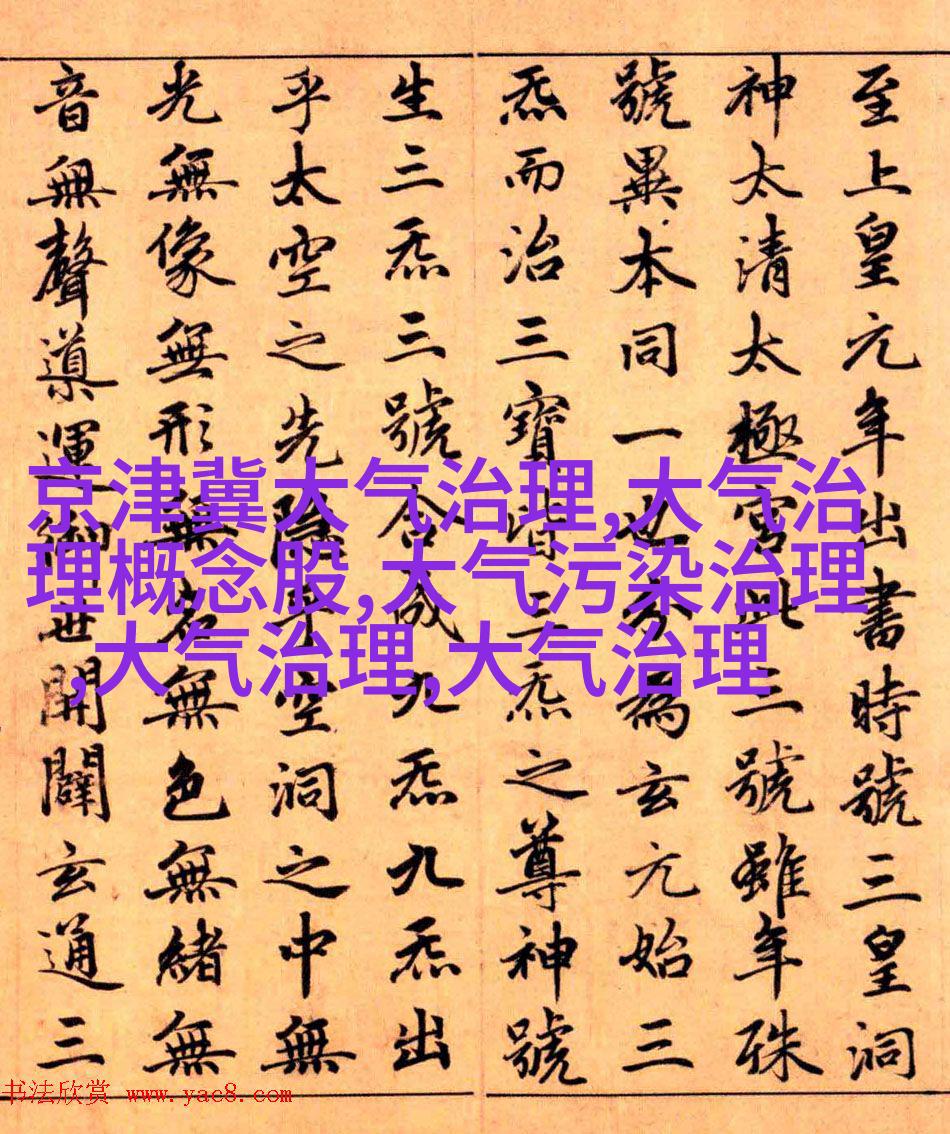 至上皇元年出書時號三皇洞
神太清太極宮此三號雖年殊
號異本同一也分為玄元始三
炁而治三寶皆三炁之尊神號
生三炁三號合成九炁九炁出
乎太空之先隱乎空洞之中無
光無像無形無名無色無緒無
音無聲導運御世開闢玄通三
京津冀大气治理,大气治
理概念股,大气污染治理
,大气治理,大气治理
书法欣赏 www.yac8.com